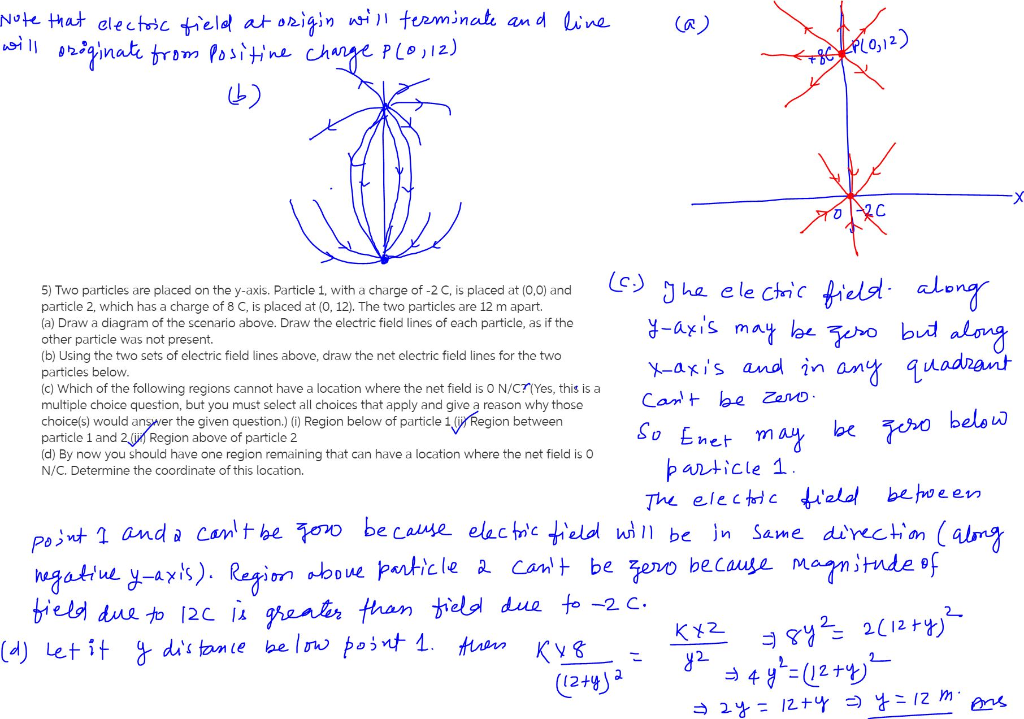 Note that electric field at origin will terminate and line
will originate from Positive charge P(0,12)
(a)
+8C
P(0,12)
(b)
X
0
-2C
5) Two particles are placed on the y-axis. Particle 1, with a charge of -2 C, is placed at (0,0) and
particle 2, which has a charge of 8 C, is placed at (0, 12). The two particles are 12 m apart.
(a) Draw a diagram of the scenario above. Draw the electric field lines of each particle, as if the
other particle was not present.
(b) Using the two sets of electric field lines above, draw the net electric field lines for the two
particles below.
(c) Which of the following regions cannot have a location where the net field is 0 N/C? (Yes, this is a
multiple choice question, but you must select all choices that apply and give a reason why those
choice(s) would answer the given question.) (i) Region below of particle 1 (ii) Region between
particle 1 and 2 (iii) Region above of particle 2
(d) By now you should have one region remaining that can have a location where the net field is 0
N/C. Determine the coordinate of this location.
(C.) The electric field. along
y-axis may be zero but along
x-axis and in any quadrant
can't be zero.
So Enet may be zero below
particle 1.
The electric field between
point 1 and 2 can't be zero because electric field will be in same direction (along
negative y-axis). Region above particle 2 can't be zero because magnitude of
field due to 12C is greater than field due to -2C.
(d) Let it y distance below point 1. then K×8/(12+y)² = K×2/y² ⇒ 8y² = 2(12+y)²
⇒ 4y² = (12+y)²
⇒ 2y = 12+y ⇒ y = 12 m. Ans